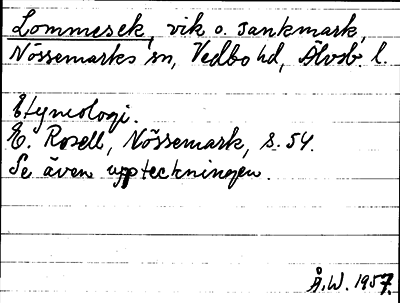 Lommesek, vik o. sankmark,
Nössemarks sn, Vedbo hd, Älvsb. l.
Etymologi.
E. Rosell, Nössemark, s. 54.
Se även uppteckningen.
Å.W. 1957.